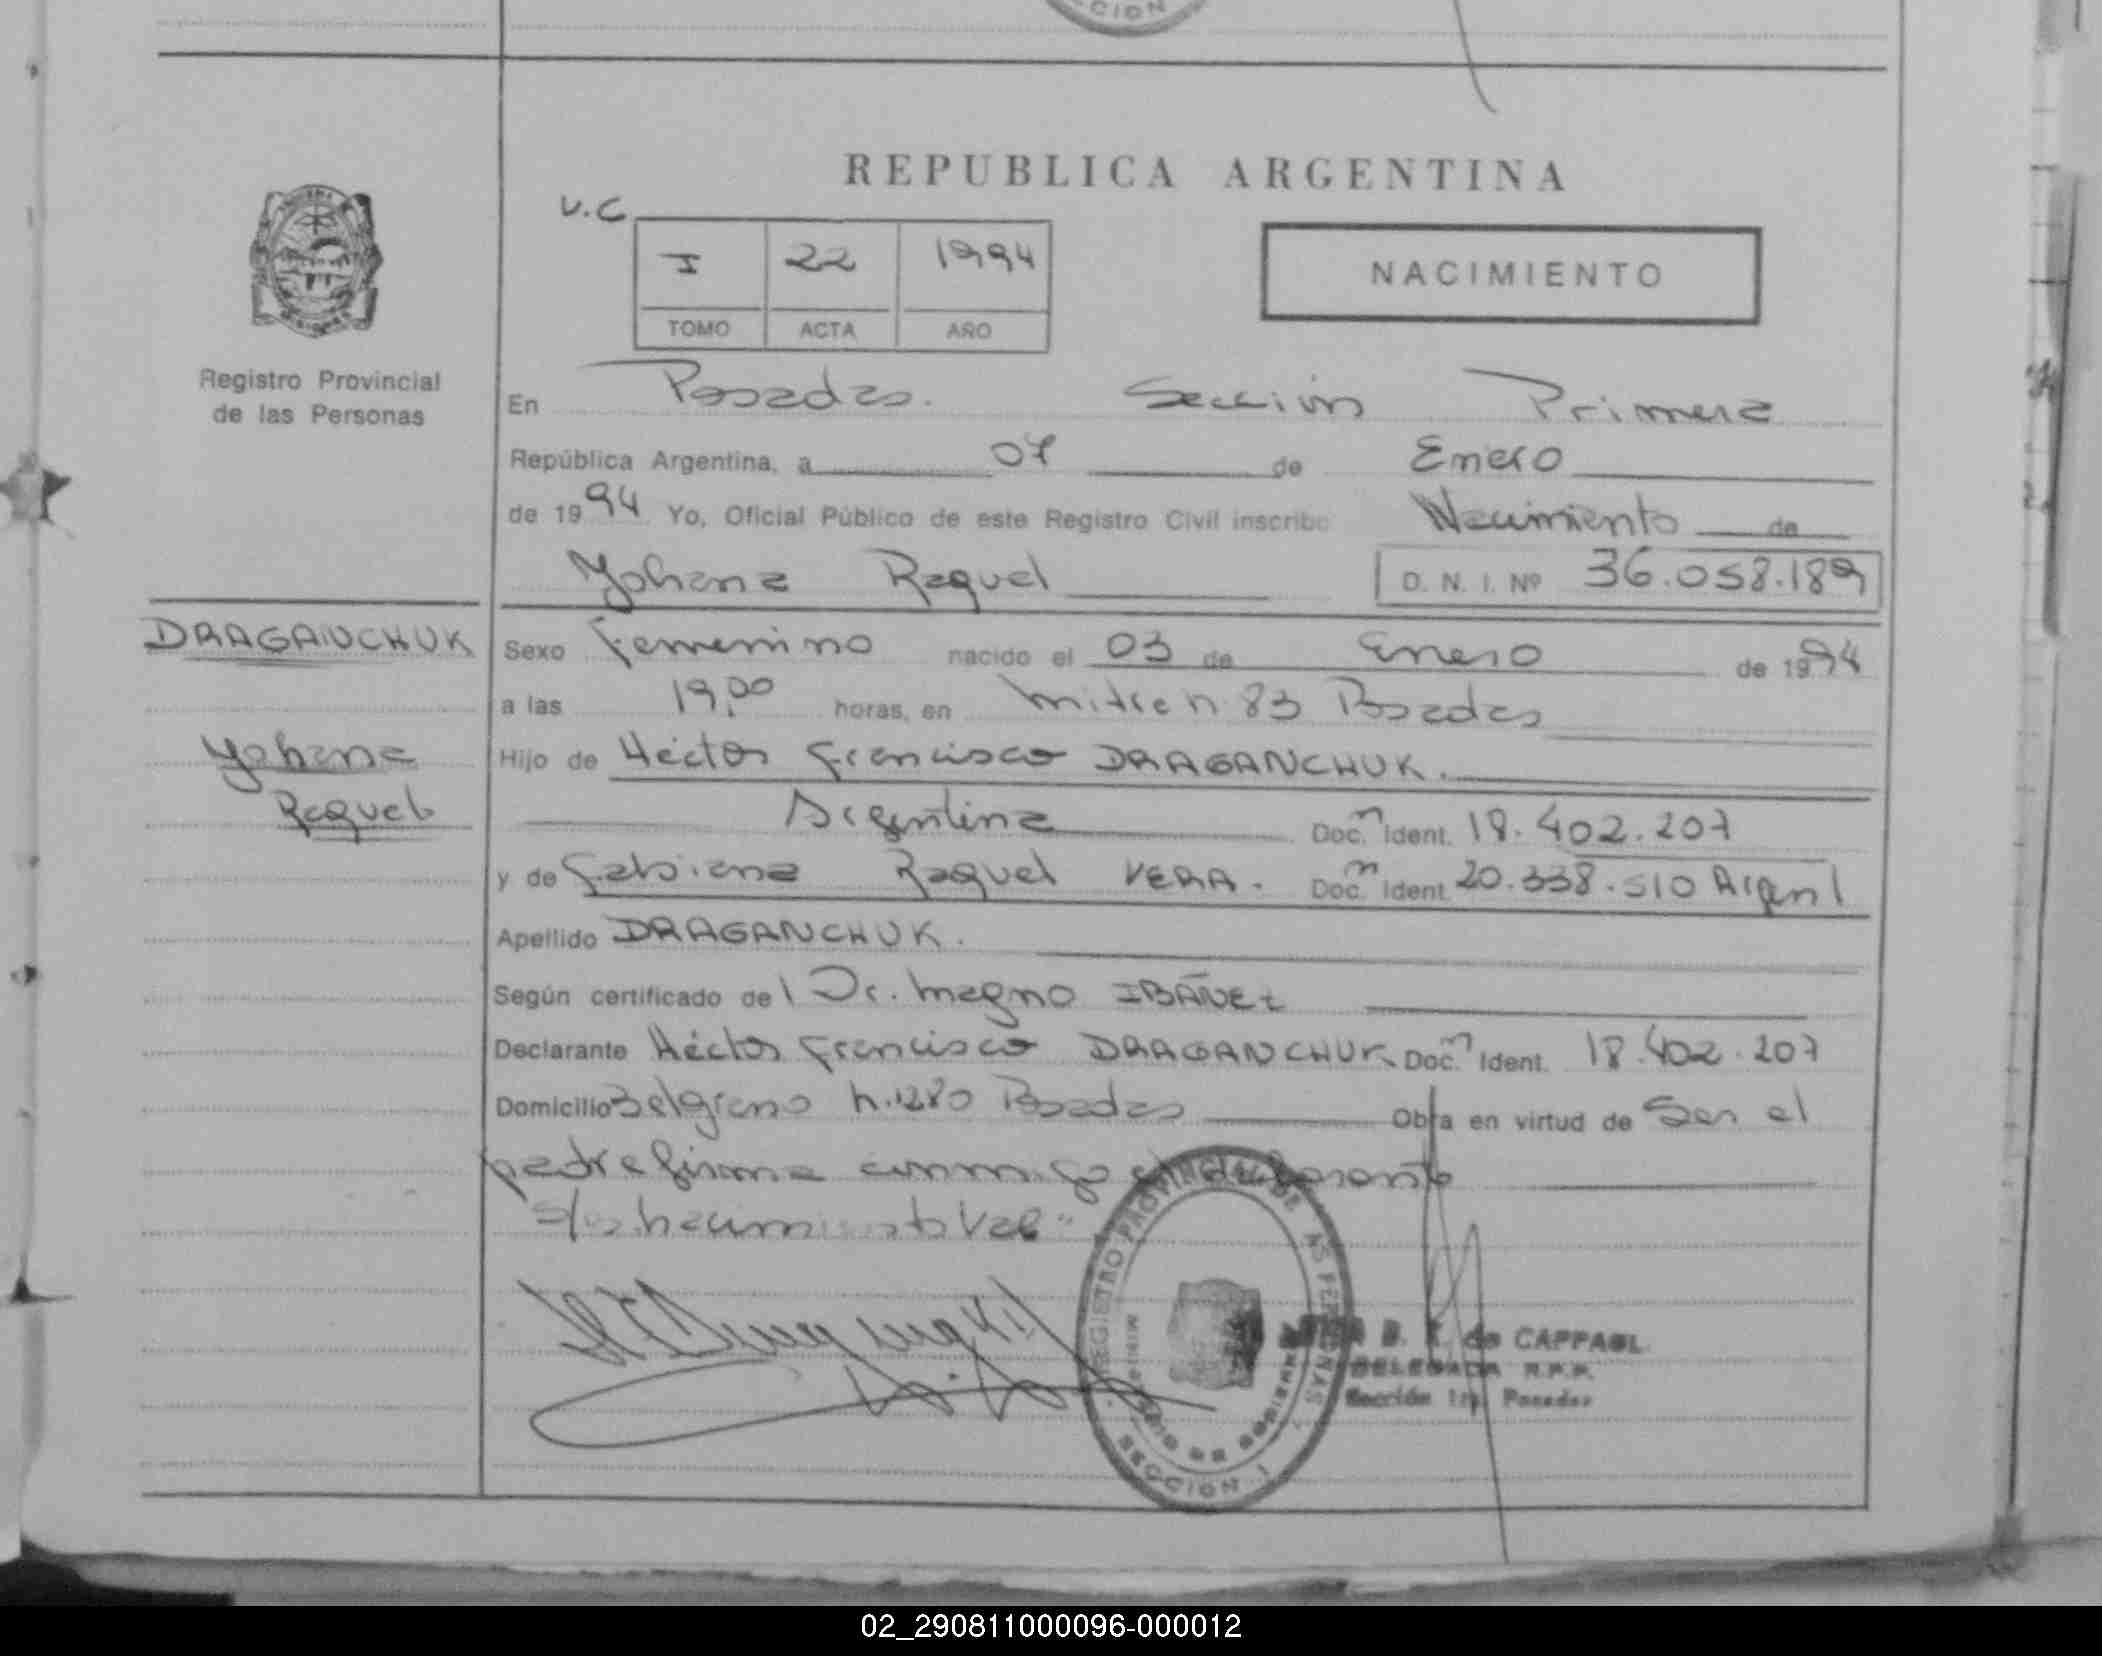 CCION
REPUBLICA ARGENTINA
V.C
I 22 1994
TOMO ACTA AÑO
NACIMIENTO
Registro Provincial
de las Personas
En Posadas. Sección Primera
República Argentina, a 07 de Enero
de 1994 Yo, Oficial Público de este Registro Civil inscribo Nacimiento de
Yohana Raquel D. N. I. Nº 36.058.189
DRAGANCHUK
Yohana
Raquel
Sexo Femenino nacido el 03 de Enero de 1994
a las 19,00 horas, en Mitre n 83 Posadas
Hijo de Héctor Francisco DRAGANCHUK.
Argentina Doc. n Ident. 18.402.207
y de Fabiana Raquel VERA. Doc. n Ident. 20.338.510 Argent
Apellido DRAGANCHUK.
Según certificado del Dr. Magno IBAÑEZ
Declarante Héctor Francisco DRAGANCHUK Doc. n Ident. 18.402.207
Domicilio Belgrano n.1280 Posadas Obra en virtud de Ser el
padre firma conmigo el declarante
nacimiento Vale"
REGISTRO PROVINCIAL DE
SECCION I
de CAPPAGL
DELEGADA R.P.P.
Sección 1ra. Posadas
02_290811000096-000012